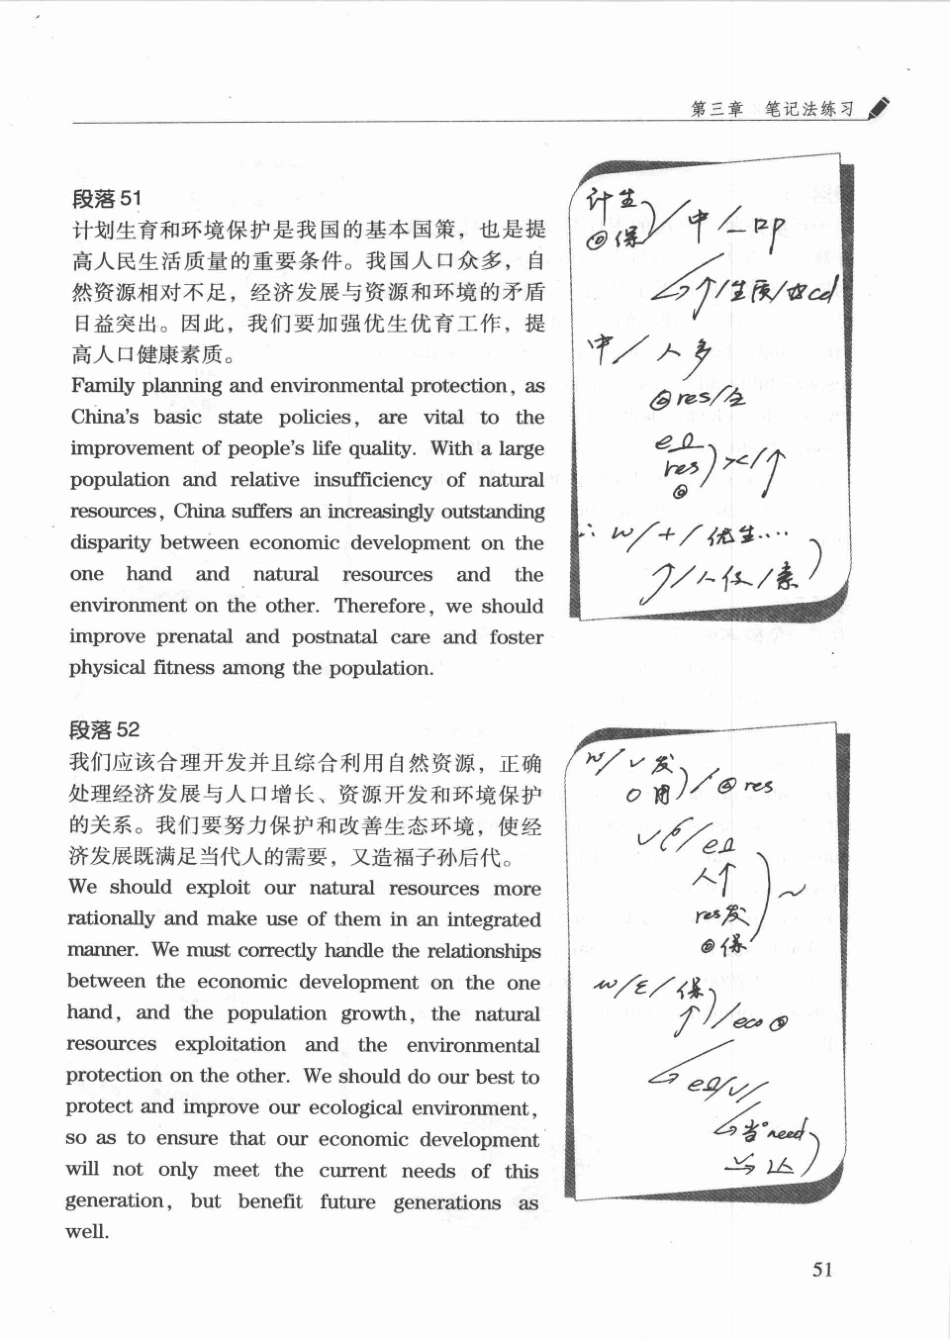 第三章 笔记法练习
段落 51
计划生育和环境保护是我国的基本国策，也是提
高人民生活质量的重要条件。我国人口众多，自
然资源相对不足，经济发展与资源和环境的矛盾
日益突出。因此，我们要加强优生优育工作，提
高人口健康素质。
Family planning and environmental protection, as
China's basic state policies, are vital to the
improvement of people's life quality. With a large
population and relative insufficiency of natural
resources, China suffers an increasingly outstanding
disparity between economic development on the
one hand and natural resources and the
environment on the other. Therefore, we should
improve prenatal and postnatal care and foster
physical fitness among the population.
计生
保 / 中 /
↑/生质/
中 / 人多
res/
res
∴ w/+/优生....
段落 52
我们应该合理开发并且综合利用自然资源，正确
处理经济发展与人口增长、资源开发和环境保护
的关系。我们要努力保护和改善生态环境，使经
济发展既满足当代人的需要，又造福子孙后代。
We should exploit our natural resources more
rationally and make use of them in an integrated
manner. We must correctly handle the relationships
between the economic development on the one
hand, and the population growth, the natural
resources exploitation and the environmental
protection on the other. We should do our best to
protect and improve our ecological environment,
so as to ensure that our economic development
will not only meet the current needs of this
generation, but benefit future generations as
well.
w/ ✓ 发
用 / res
人↑
res发
保
保
↑ / eco
当 need
51